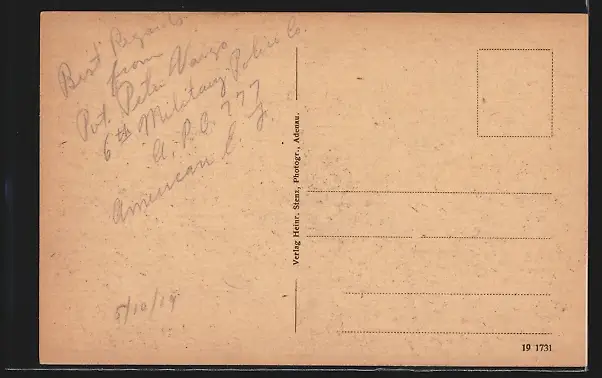 Best Regards
from
Pvt. Peter Vargo
6th Military Police Co.
A. P. O. 777
American E. F.
5/10/19
Verlag Heinr. Stenz, Photogr., Adenau.
19 1731